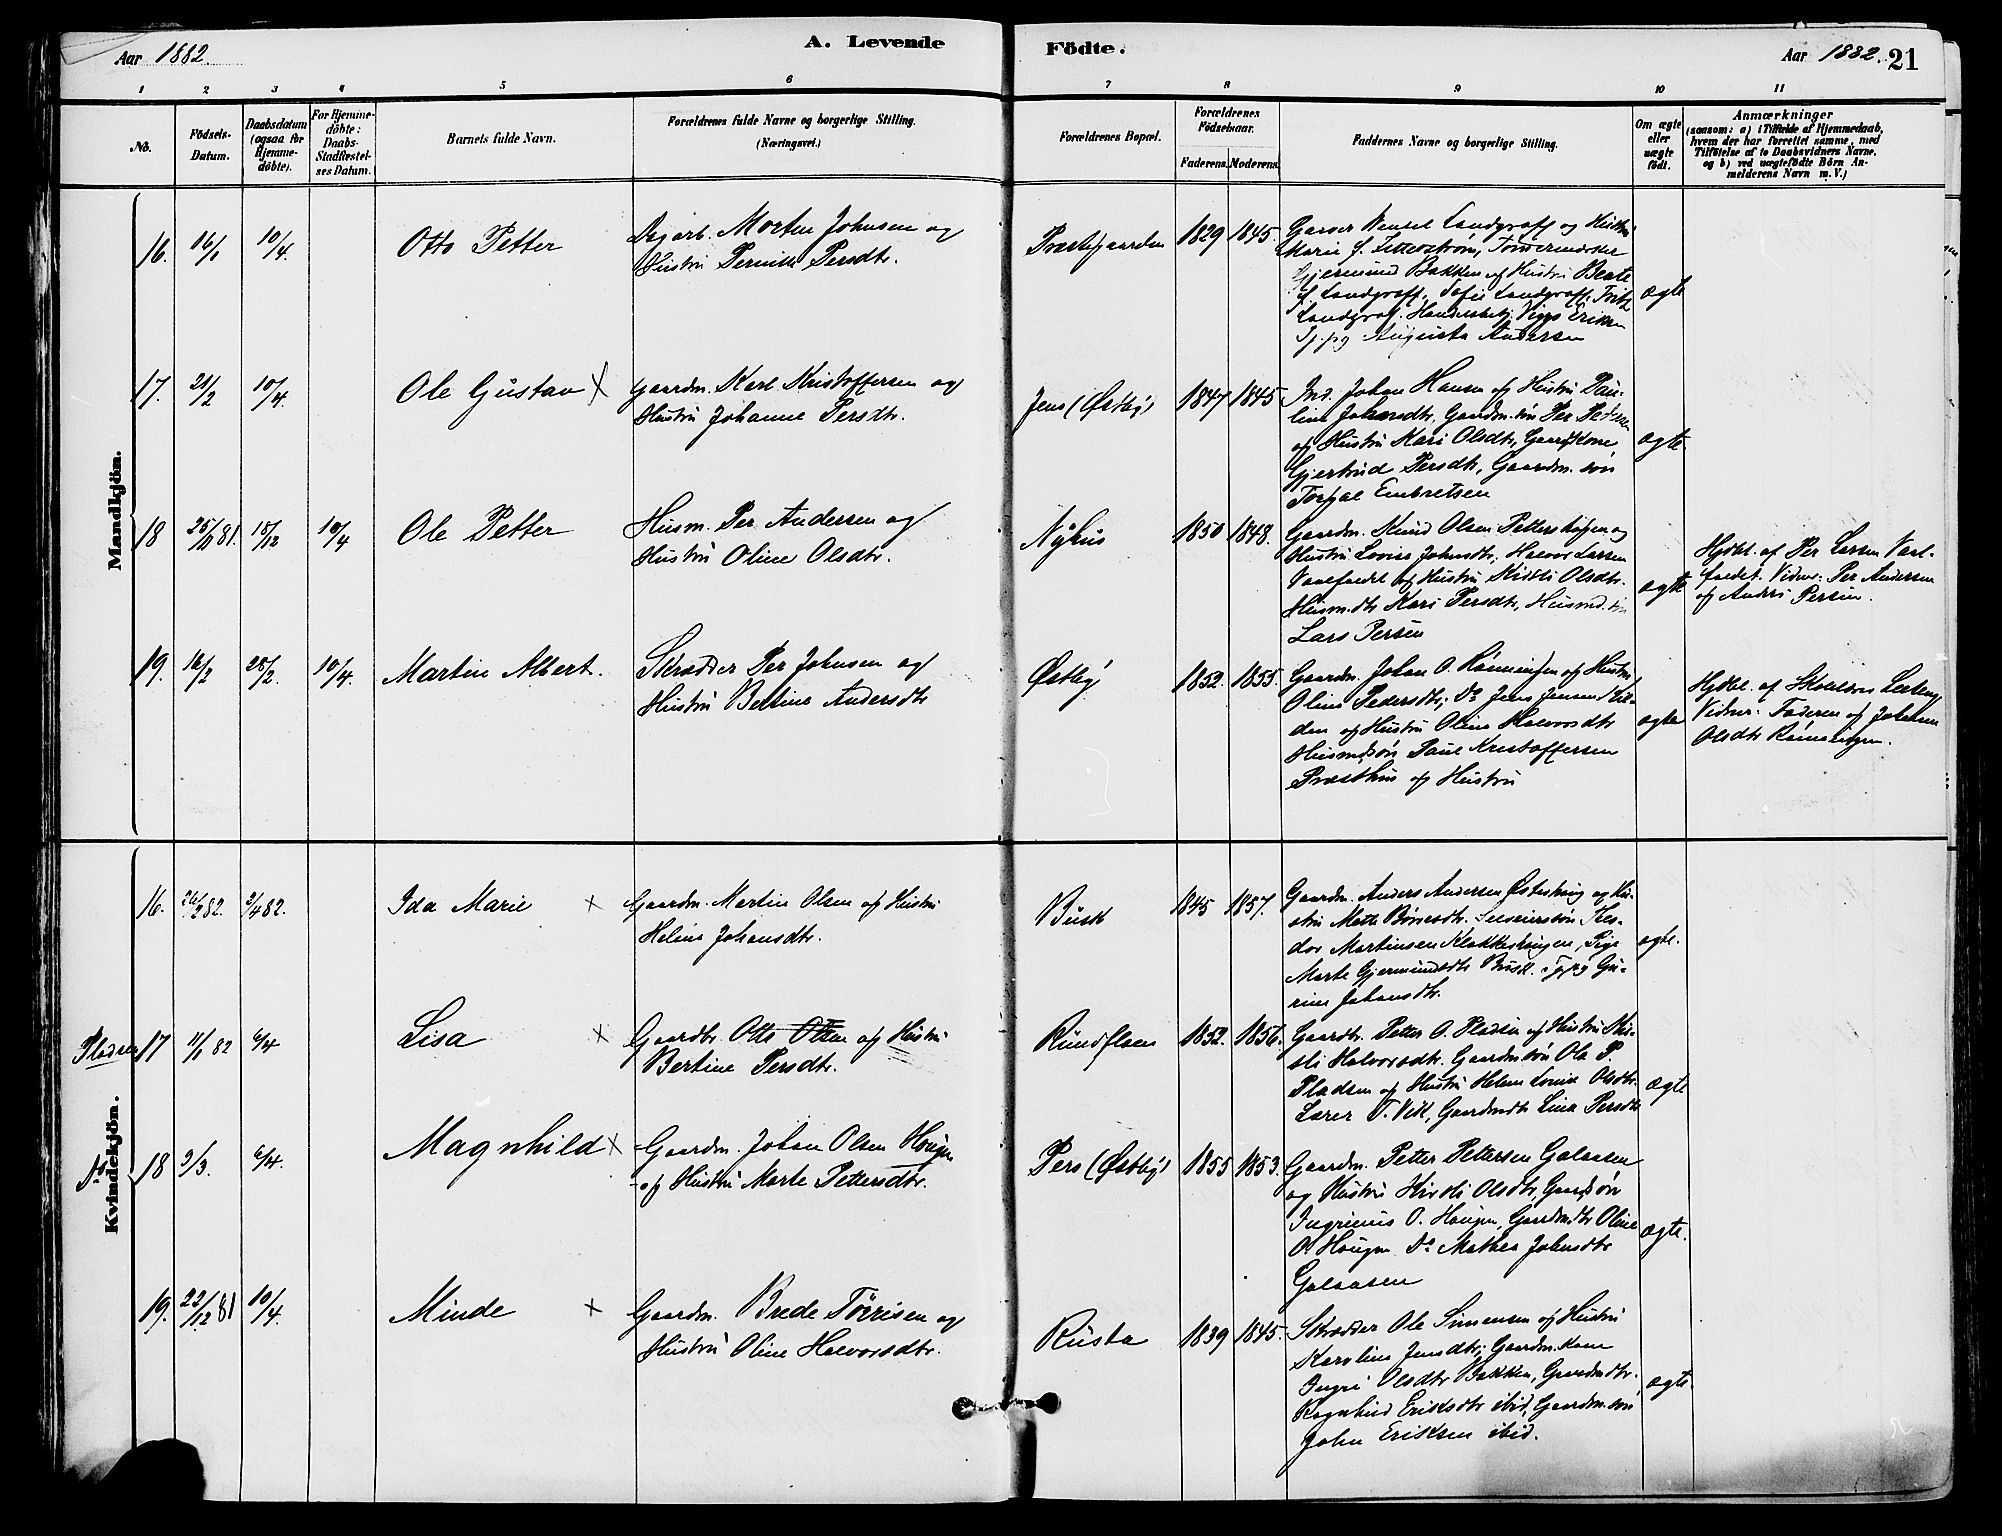 Aar 1882.
A. Levende Födte.
Aar 1882. 21
1 2 3 4 5 6 7 8 9 10 11
No.
Födsels-
Datum.
Daabsdatum
(ogsaa for
Hjemme-
döbte).
For Hjemme-
döbte:
Daabs-
Stadfæstel-
ses Datum.
Barnets fulde Navn.
Forældrenes fulde Navne og borgerlige Stilling.
(Næringsvei.)
Forældrenes Bopæl.
Forældrenes
Födselsaar.
Faderens. Moderens.
Faddernes Navne og borgerlige Stilling.
Om ægte
eller
uægte
födt.
Anmærkninger
(saasom: a) i Tilfælde af Hjemmedaab,
hvem der har forrettet samme, med
Tilföielse af to Daabsvidners Navne,
og b) ved uægtefödte Börn An-
melderens Navn m. V.)
Mandkjön.
16. 16/1 10/4. Otto Petter
Dagarb. Morten Johnsen og
Hustru Pernille Persdtr.
Præstegaarden 1829 1845.
Garver Wentzel Landgraff og Hustru
Marie f. Zetterstrøm, Tømmermærker
Gjermund Bakken og Hustru Beate
f. Landgraff, Sofie Landgraff, Fritz
Landgraf. Handelsbetj. Viggo Eriksen
Tj.pg Augusta Andersen
ægte
17. 21/2 10/4. Ole Gustav X
Gaardm. Karl Kristoffersen og
Hustru Johanne Persdtr.
Jens (Østby) 1847 1845
Ind. Johan Hansen og Hustru Pau-
line Johansdtr, Gaardm.søn Per Petersen
og Hustru Kari Olsdtr, Gaardkone
Gjertrud Persdtr, Gaardm. søn
Torgal Embretsen
ægte.
18 25/11 81. 18/12 10/4 Ole Petter
Husm. Per Andersen og
Hustru Oline Olsdtr.
Nyhus 1850 1848.
Gaardm. Knud Olsen Pettershaugen og
Hustru Lovise Johnsdtr, Halvor Larsen
Varefaldet og Hustru Kidsli Olsdtr.
Husm.dtr Kari Persdtr, Husmd.søn
Lars Persen
ægte
Hjdbt. af Per Larsen Vael-
faedet. Vidner: Per Andersen
og Andrei Persen.
19. 16/2 28/2. 10/4. Martin Albert.
Skrædder Per Johnsen og
Hustru Bertine Andersdtr
Østby 1852. 1855.
Gaardm. Johan O. Rønningen og Hustru
Oline Pedersdtr, Do Jens Jensen Kil-
den og Hustru Oline Halvorsdtr
Husmdsøn Paul Kristoffersen
Præsthus og Hustru
ægte
Hjdbt. af Skolelærer Leeteng
Vidner: Faderen og Johanne
Olsdtr Rønningen.
Kvindekjön.
16. 26/2 82. 2/4 82. Ida Marie x
Gaardm. Martin Olsen og Hustru
Heline Johansdtr.
Busk 1845 1857.
Gaardm. Anders Andersen Østerhaug og Hu-
stru Mathe Børresdtr. Selveiersøn Kris-
dor Martinsen Klokkerhaugen, Pige
Marte Gjermundsdtr Busk. Tj.pg Gu-
rine Johansdtr.
ægte.
Pladsen 17 11/1 82 6/4 Lisa x
Gaardbr. Otto Olsen og Hustru
Bertine Persdtr.
Rundfloen 1852. 1856.
Gaardbr. Petter O. Pladsen og Hustru Kid-
sli Halvorsdtr. Gaardm.søn Ole P.
Pladsen og Hustru Helene Lovise Olsdtr.
Larer T. Vik, Gaardmdtr Lina Persdtr
ægte
Do 18 9/3. 6/4. Magnhild x
Gaardm. Johan Olsen Hougen
og Hustru Marte Pettersdtr.
Pers (Østby) 1855 1853.
Gaardm. Petter Pettersen Galaasen
og Hustru Kirsti Olsdtr, Gaardsøn
Ingrinius O. Hougen, Gaardmdtr Oline
O. Hougen Do Mathea Johnsdtr
Galaasen
ægte.
19. 22/12 81 10/4. Minde x
Gaardm. Brede Tørrisen og
Hustru Oline Halvorsdtr.
Rusta 1839 1845.
Skrædder Ole Simensen og Hustru
Karoline Jensdtr; Gaardm.kone
Ingri Olsdtr Bakken, Gaardmdtr.
Ragnhild Eriksdtr ibid, Gaardm.søn
John Eriksen ibid.
ægte.